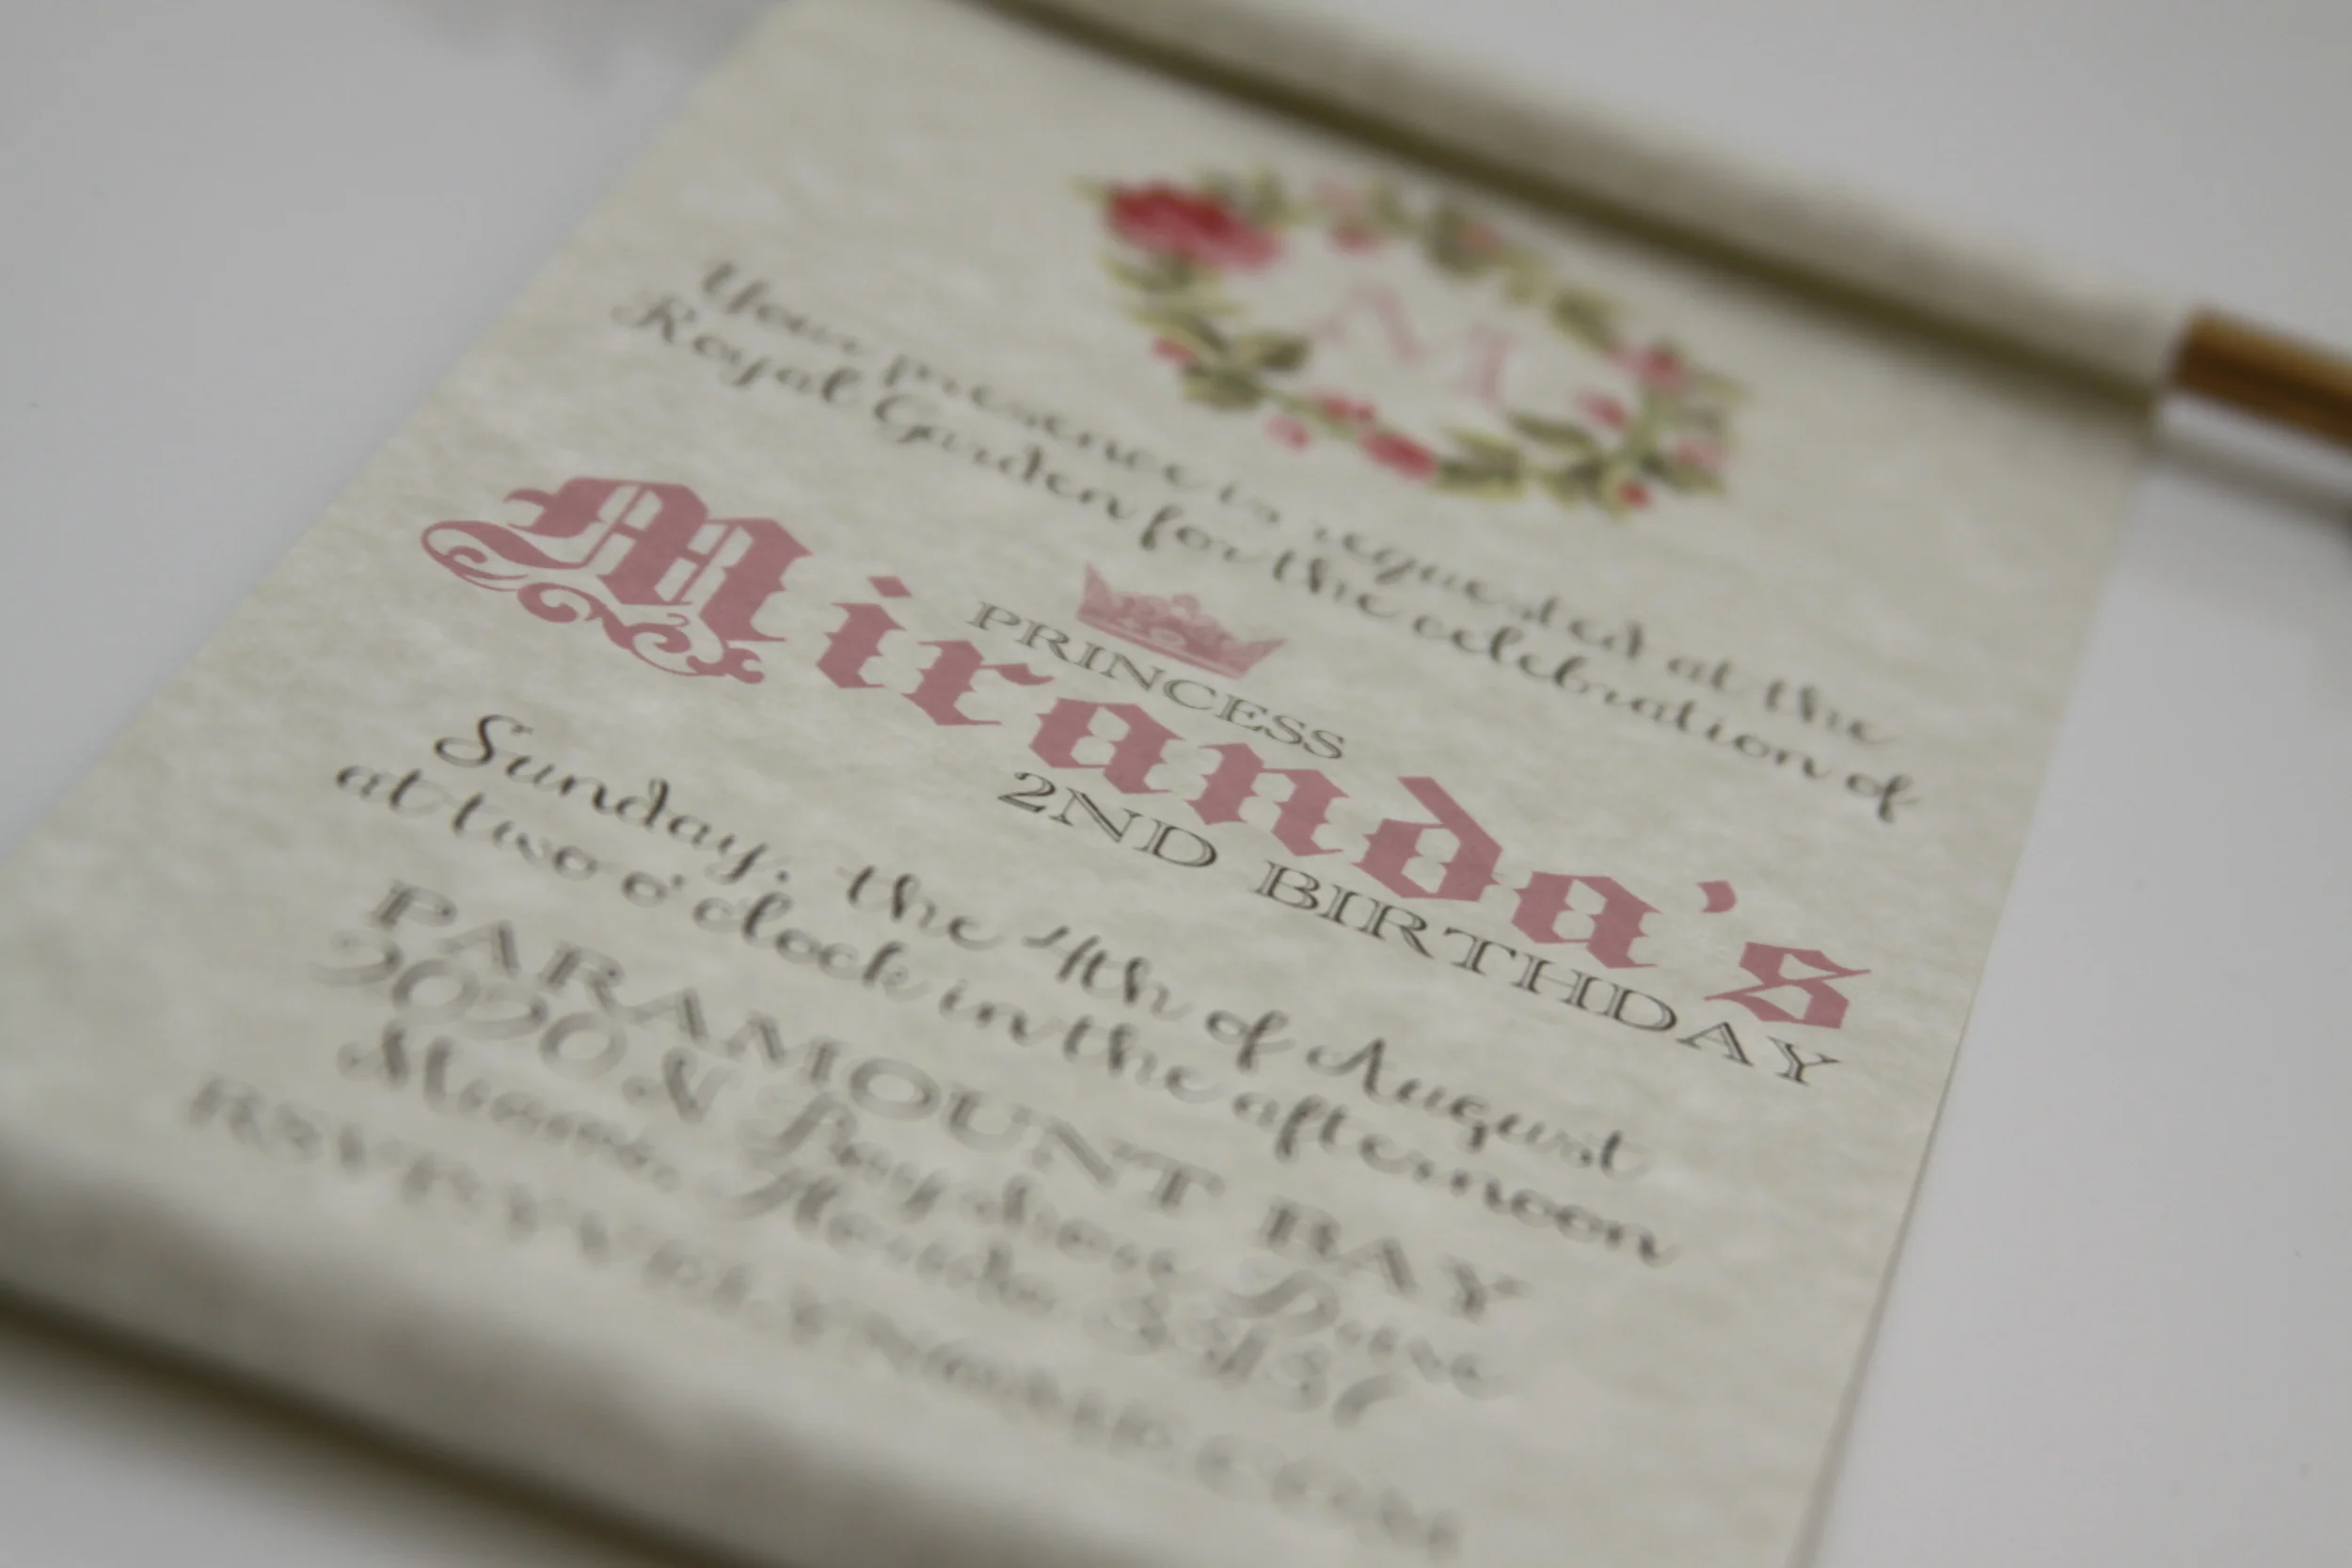 M
Your presence is requested at the
Royal Garden for the celebration of
PRINCESS
Miranda's
2ND BIRTHDAY
Sunday, the 4th of August
at two o'clock in the afternoon
PARAMOUNT BAY
2020 N Bayshore Drive
Miami, Florida 33137
RSVP